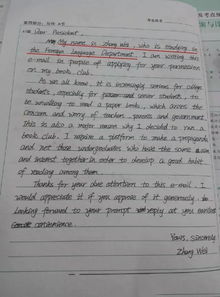 Dear President,
My name is Zhang Wei, who is studying in
the Foreign Language Department. I am writing this
e-mail in purpose of applying for your permission
on my book club.
As we all know, it is increasingly serious for college
students, especially for junior and senior students, to
be unwilling to read a paper books, which arises the
concern and worry of teachers, parents and government.
This is also a major reason why I decided to run a
book club. I require a platform to make a propaganda
and not those undergraduates who have the same aim
and interest together in order to develop a good habit
of reading among them.
Thanks for your due attention to this e-mail. I
would appreciate it if you approve of it generously.
Looking forward to your prompt reply at you earliest
convenience.
Yours, sincerely
Zhang Wei